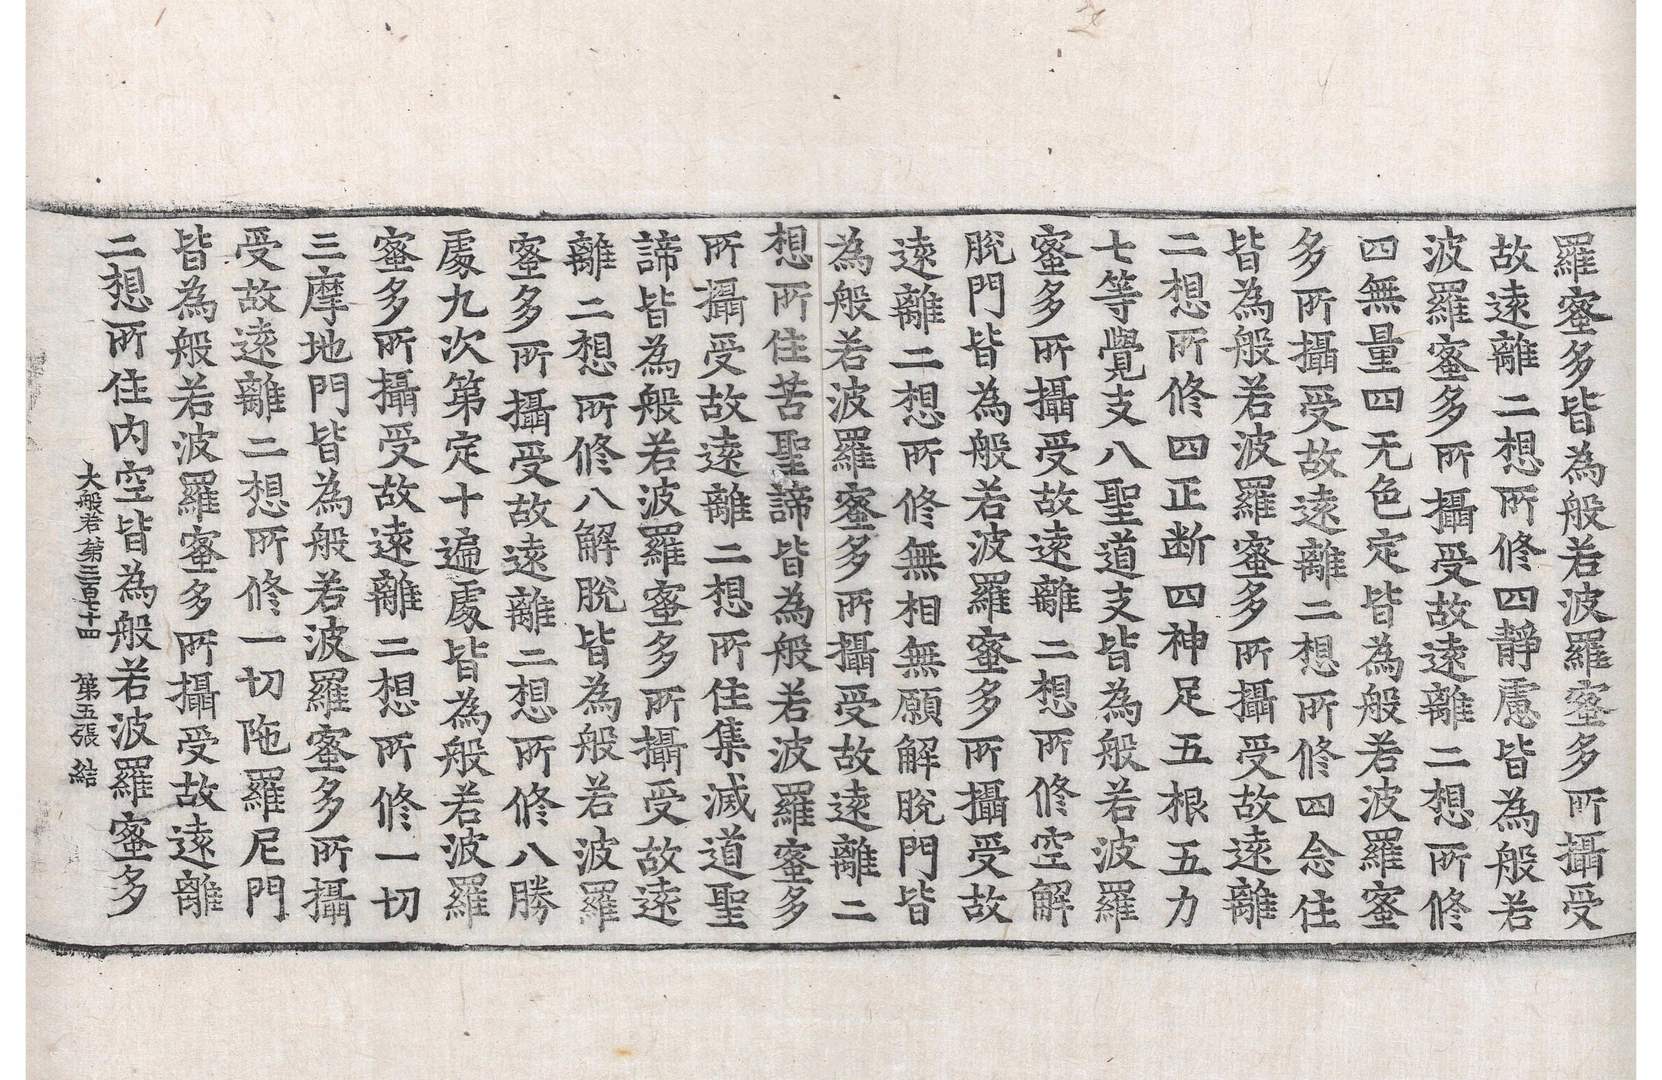 羅蜜多皆為般若波羅蜜多所攝受
故遠離二想所修四靜慮皆為般若
波羅蜜多所攝受故遠離二想所修
四無量四无色定皆為般若波羅蜜
多所攝受故遠離二想所修四念住
皆為般若波羅蜜多所攝受故遠離
二想所修四正断四神足五根五力
七等覺支八聖道支皆為般若波羅
蜜多所攝受故遠離二想所修空解
脫門皆為般若波羅蜜多所攝受故
遠離二想所修無相無願解脫門皆
為般若波羅蜜多所攝受故遠離二
想所住苦聖諦皆為般若波羅蜜多
所攝受故遠離二想所住集滅道聖
諦皆為般若波羅蜜多所攝受故遠
離二想所修八解脫皆為般若波羅
蜜多所攝受故遠離二想所修八勝
處九次第定十遍處皆為般若波羅
蜜多所攝受故遠離二想所修一切
三摩地門皆為般若波羅蜜多所攝
受故遠離二想所修一切陁羅尼門
皆為般若波羅蜜多所攝受故遠離
二想所住内空皆為般若波羅蜜多
大般若第三百七十四 第五張 結